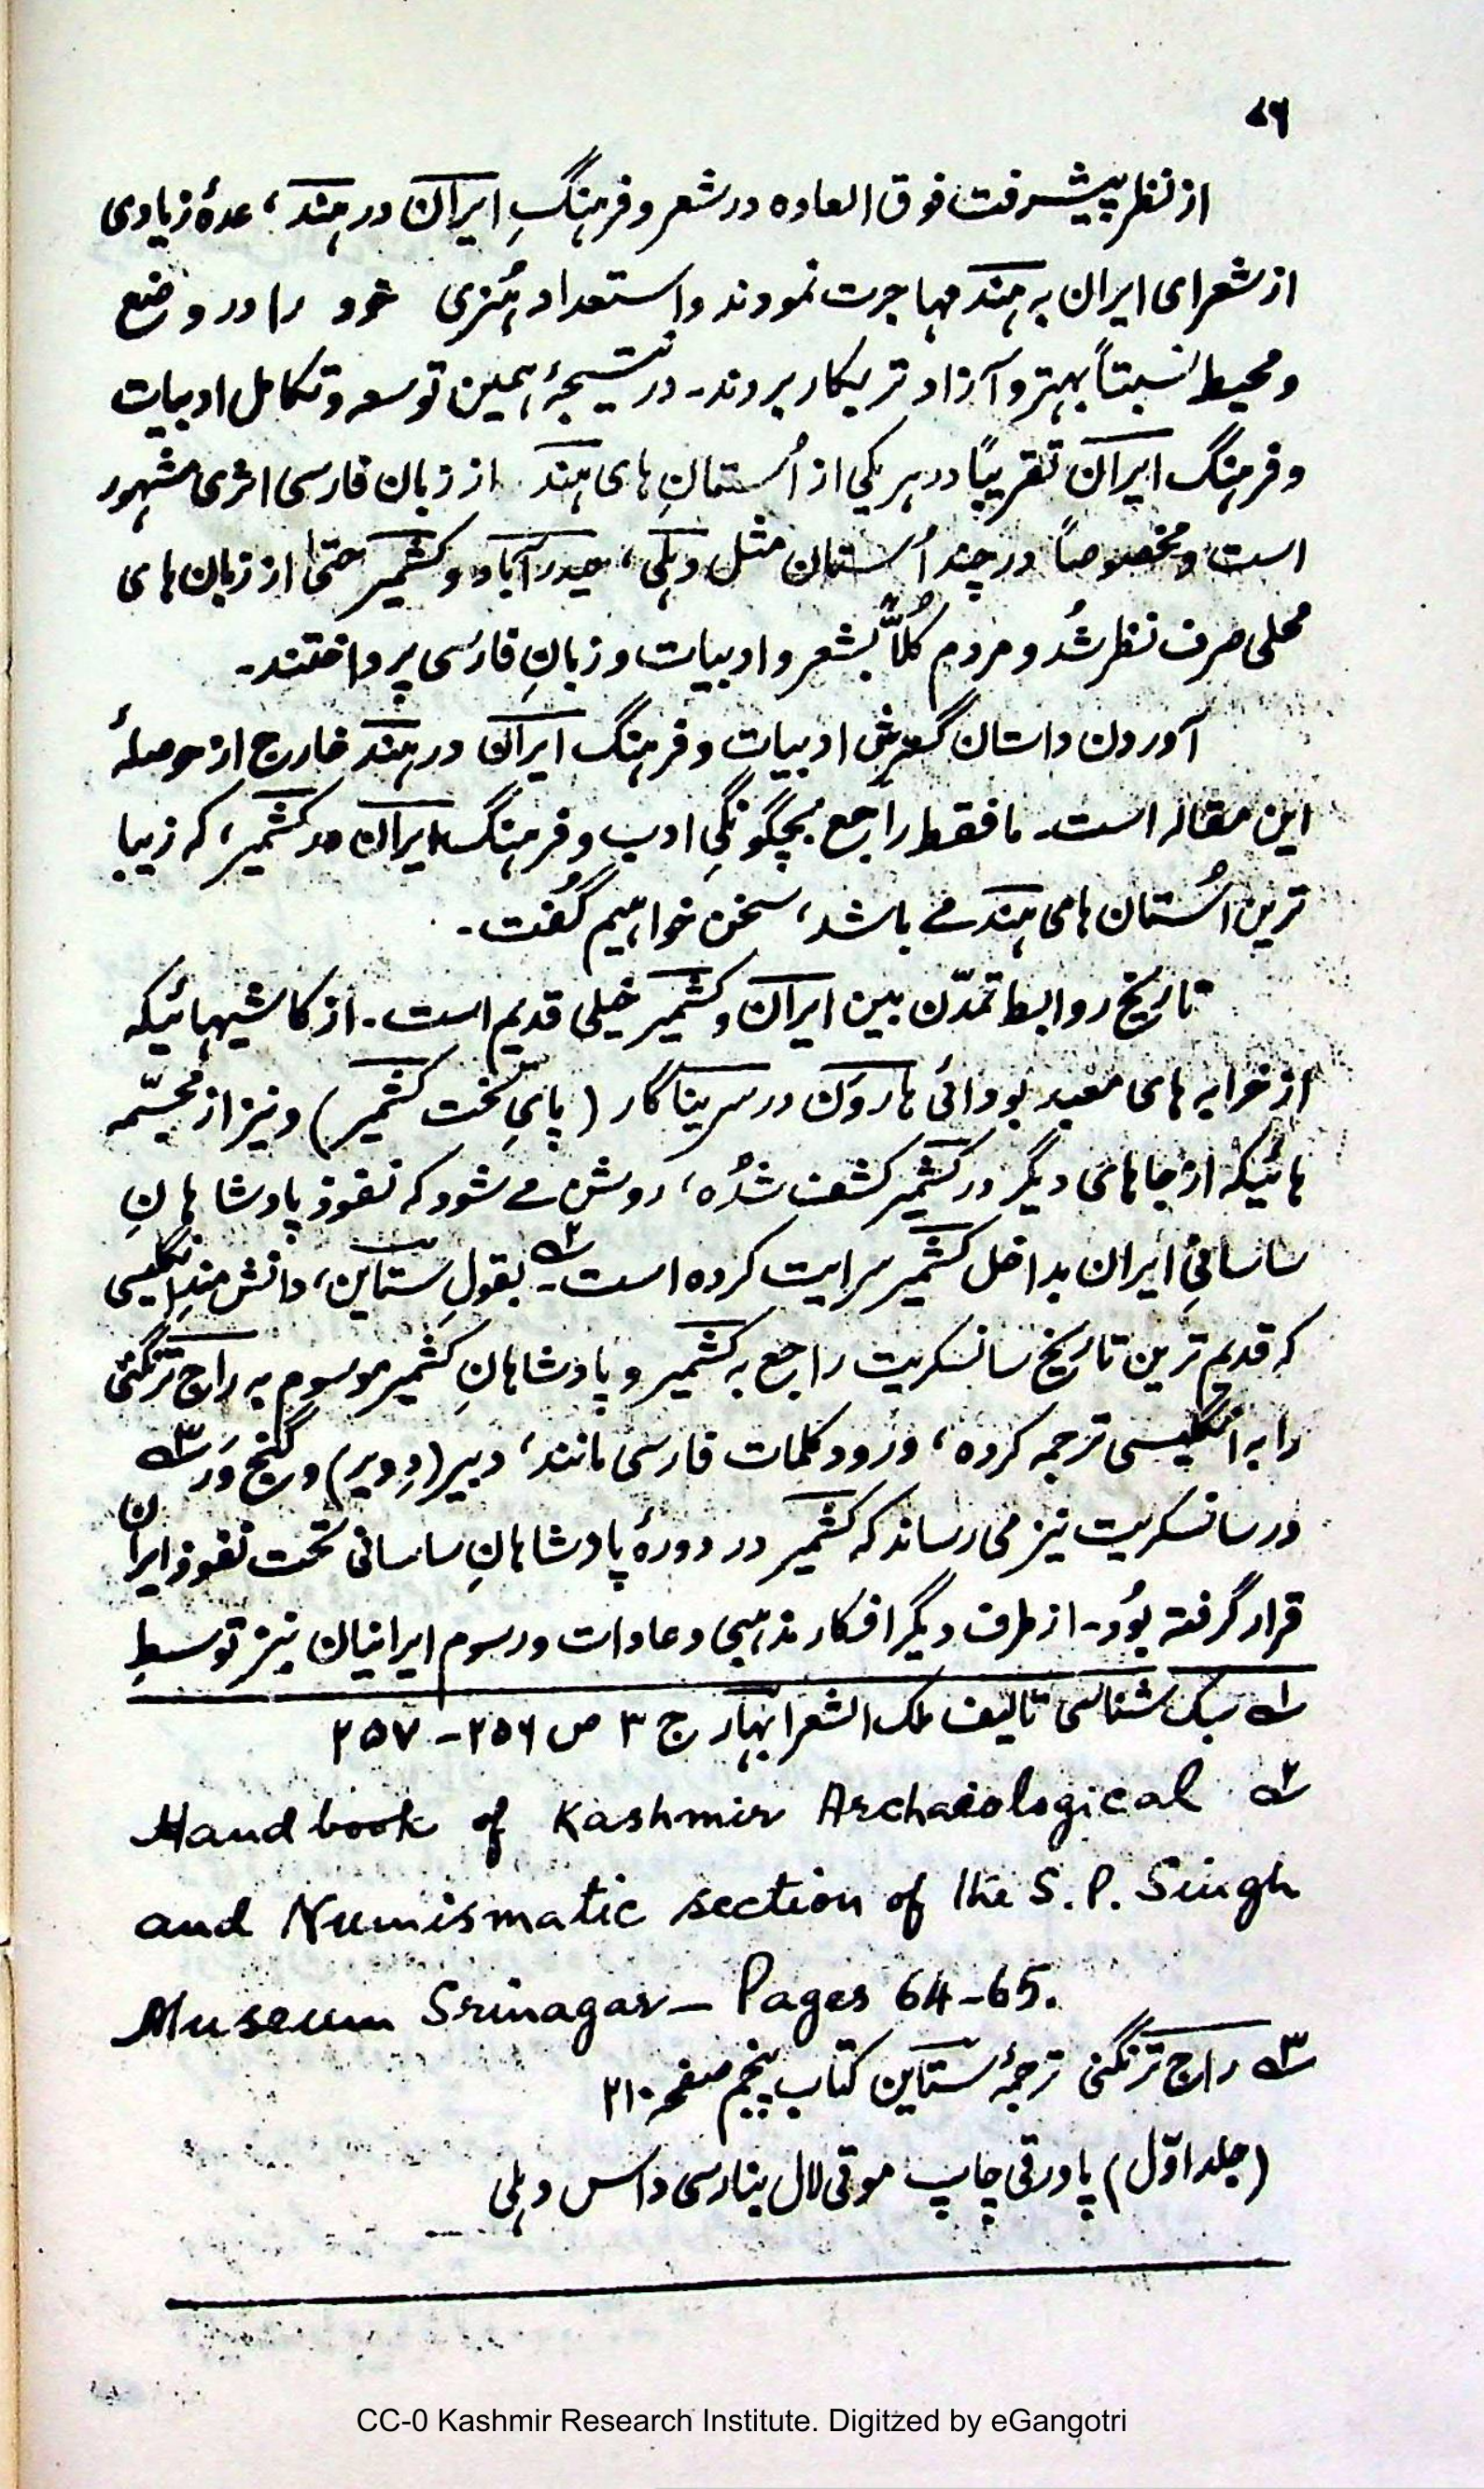 ۷۶
از نظر پیشرفت فوق العاده در شعر و فرہنگِ ایران در ہند، عدهٔ زیادی
از شعرای ایران بہ ہند مہاجرت نمودند و استعداد ہُنری خود را در وضع
و محیط نسبتاً بہتر و آزاد تر بکار بردند۔ در نتیجۂ ہمین توسعہ و تکامل ادبیات
و فرہنگ ایران تقریباً در ہر یکی از اُستانِ ہای ہند از زبان فارسی اثری مشہور
است و مخصوصاً در چند اُستان مثل دہلی، حیدرآباد و کشمیر حتیٰ از زبان ہای
محلی صرف نظر شُد و مردم کُلاً بشعر و ادبیات و زبانِ فارسی پرداختند۔
آوردن داستان گسترش ادبیات و فرہنگ ایران در ہند خارج از حوصلۂ
این مقالہ است۔ ما فقط راجع بچگونگیِ ادب و فرہنگ ایران در کشمیر، کہ زیبا
ترین اُستان ہای ہند مے باشد، سخن خواہیم گُفت۔
تاریخ روابط تمدّن بین ایران و کشمیر خیلی قدیم است۔ از کاشیہائیکہ
از خرابہ ہای معبد بودائی ہاروَن در سریناگار (پایِ تخت کشمیر) و نیز از مجسّمہ
ہائیکہ از جاہای دیگر در کشمیر کشف شُدہ، روشن مے شود کہ نفوذ پادشاہانِ
ساسانیِ ایران بداخل کشمیر سرایت کردہ است۔ ؎۲ بقولِ ستاین، دانش مندِ انگلیسی
کہ قدیم ترین تاریخ سانسکریت راجع بہ کشمیر و پادشاہانِ کشمیر موسوم بہ راج ترنگنی
را بہ انگلیسی ترجمہ کردہ، ورود کلمات فارسی مانند، دبیر (دِویر) و گنج وَر ؎۳
در سانسکریت نیز می رساند کہ کشمیر در دورۂ پادشاہانِ ساسانی تحت نفوذ ایران
قرار گرفتہ بُود۔ از طرف دیگر افکار مذہبی و عادات و رسوم ایرانیان نیز توسطِ
؎۱ سبک شناسی تالیف ملک الشعرا بہار ج ۳ ص ۲۵۶ - ۲۵۷
؎۲ Handbook of Kashmir Archaiological
and Numismatic section of the S.P. Singh
Museum Srinagar – Pages 64-65.
؎۳ راج ترنگنی ترجمۂ ستاین کتاب پنجم صفحہ ۲۱۰
(جلد اوّل) پاورقی چاپ موتی لال بنارسی داس دہلی
CC-0 Kashmir Research Institute. Digitzed by eGangotri